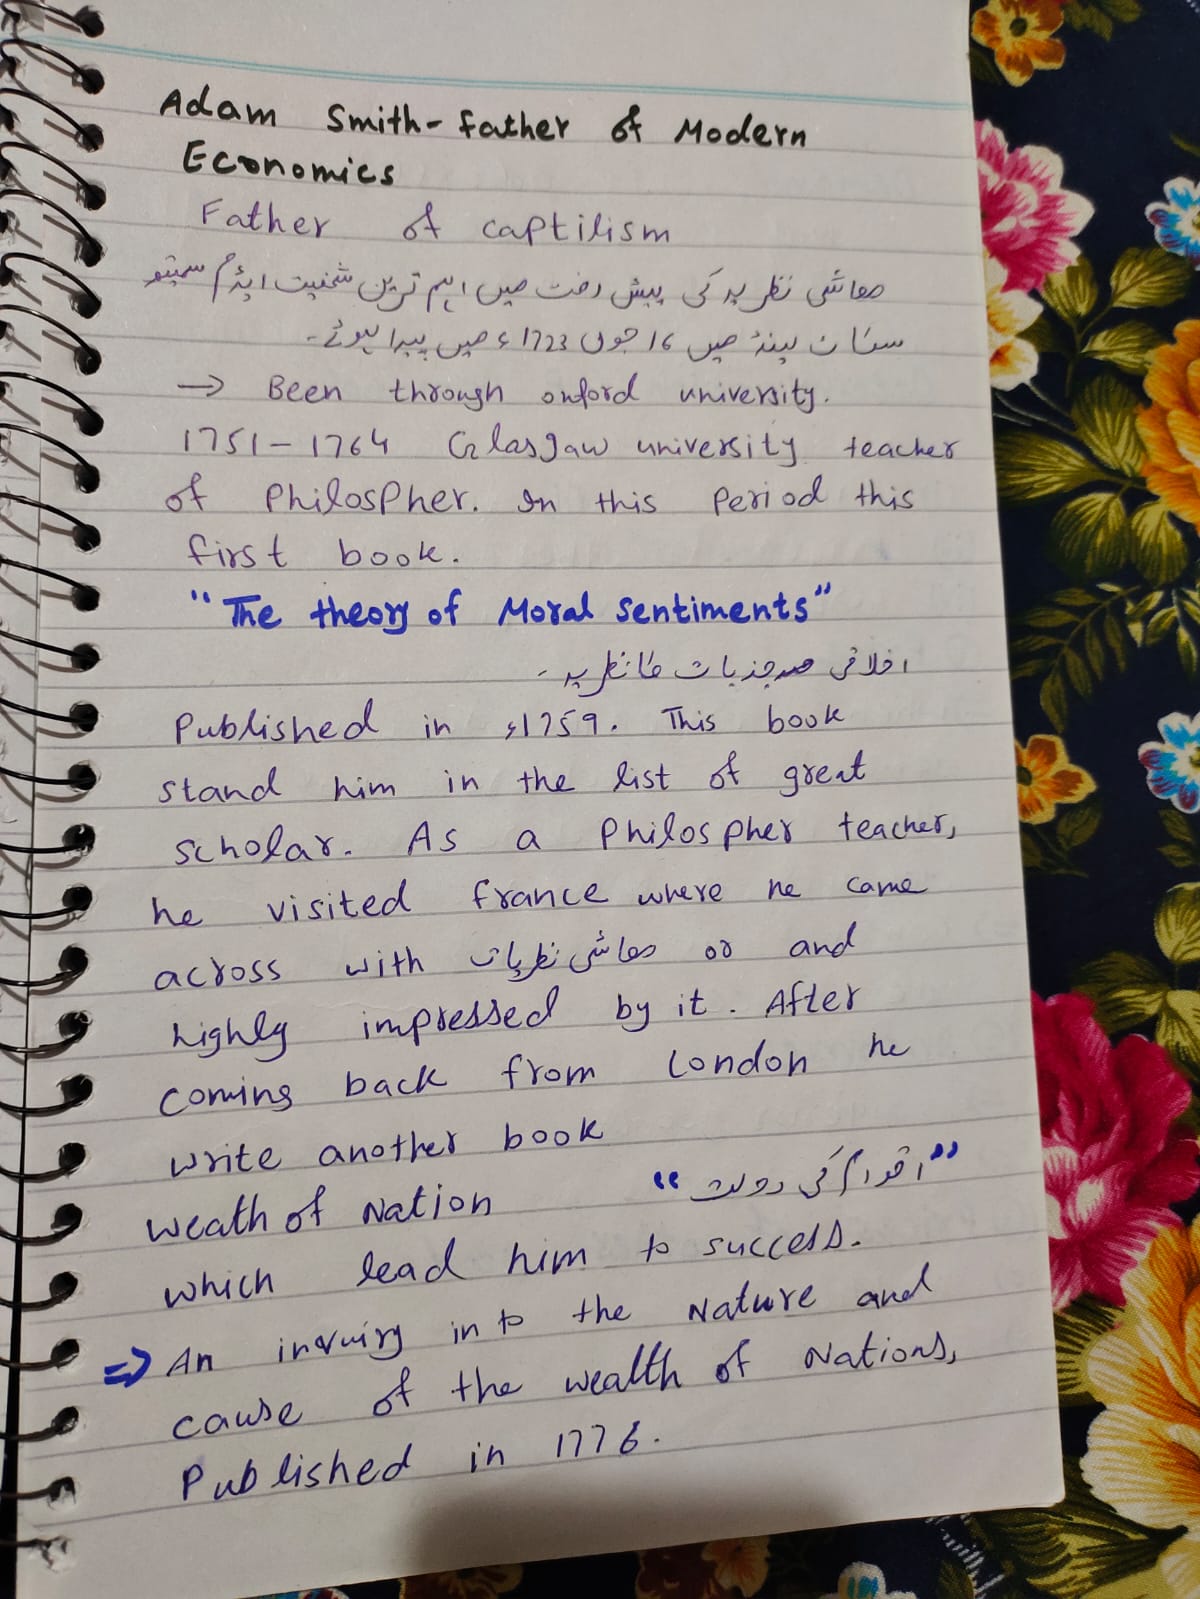 Adam Smith - Father of Modern
Economics
Father of captilism
معاشی نظریہ کی پیش رفت میں اہم ترین شخصیت ایڈم سمیتھ
سکاٹ لینڈ میں 16 جون 1723ء میں پیدا ہوئے۔
→ Been through oxford university.
1751 - 1764 Glasgaw university teacher
of Philospher. In this Period this
first book.
"The theory of Moral Sentiments"
اخلاقی جذبات کا نظریہ۔
Published in ء1759. This book
stand him in the list of great
scholar. As a Philospher teacher,
he visited france where he came
across with معاشی نظریات and
highly impressed by it. After
coming back from London he
write another book
Weath of Nation "اقوام کی دولت"
which lead him to success.
⇒ An inquiry in to the Nature and
cause of the wealth of Nations,
Published in 1776.